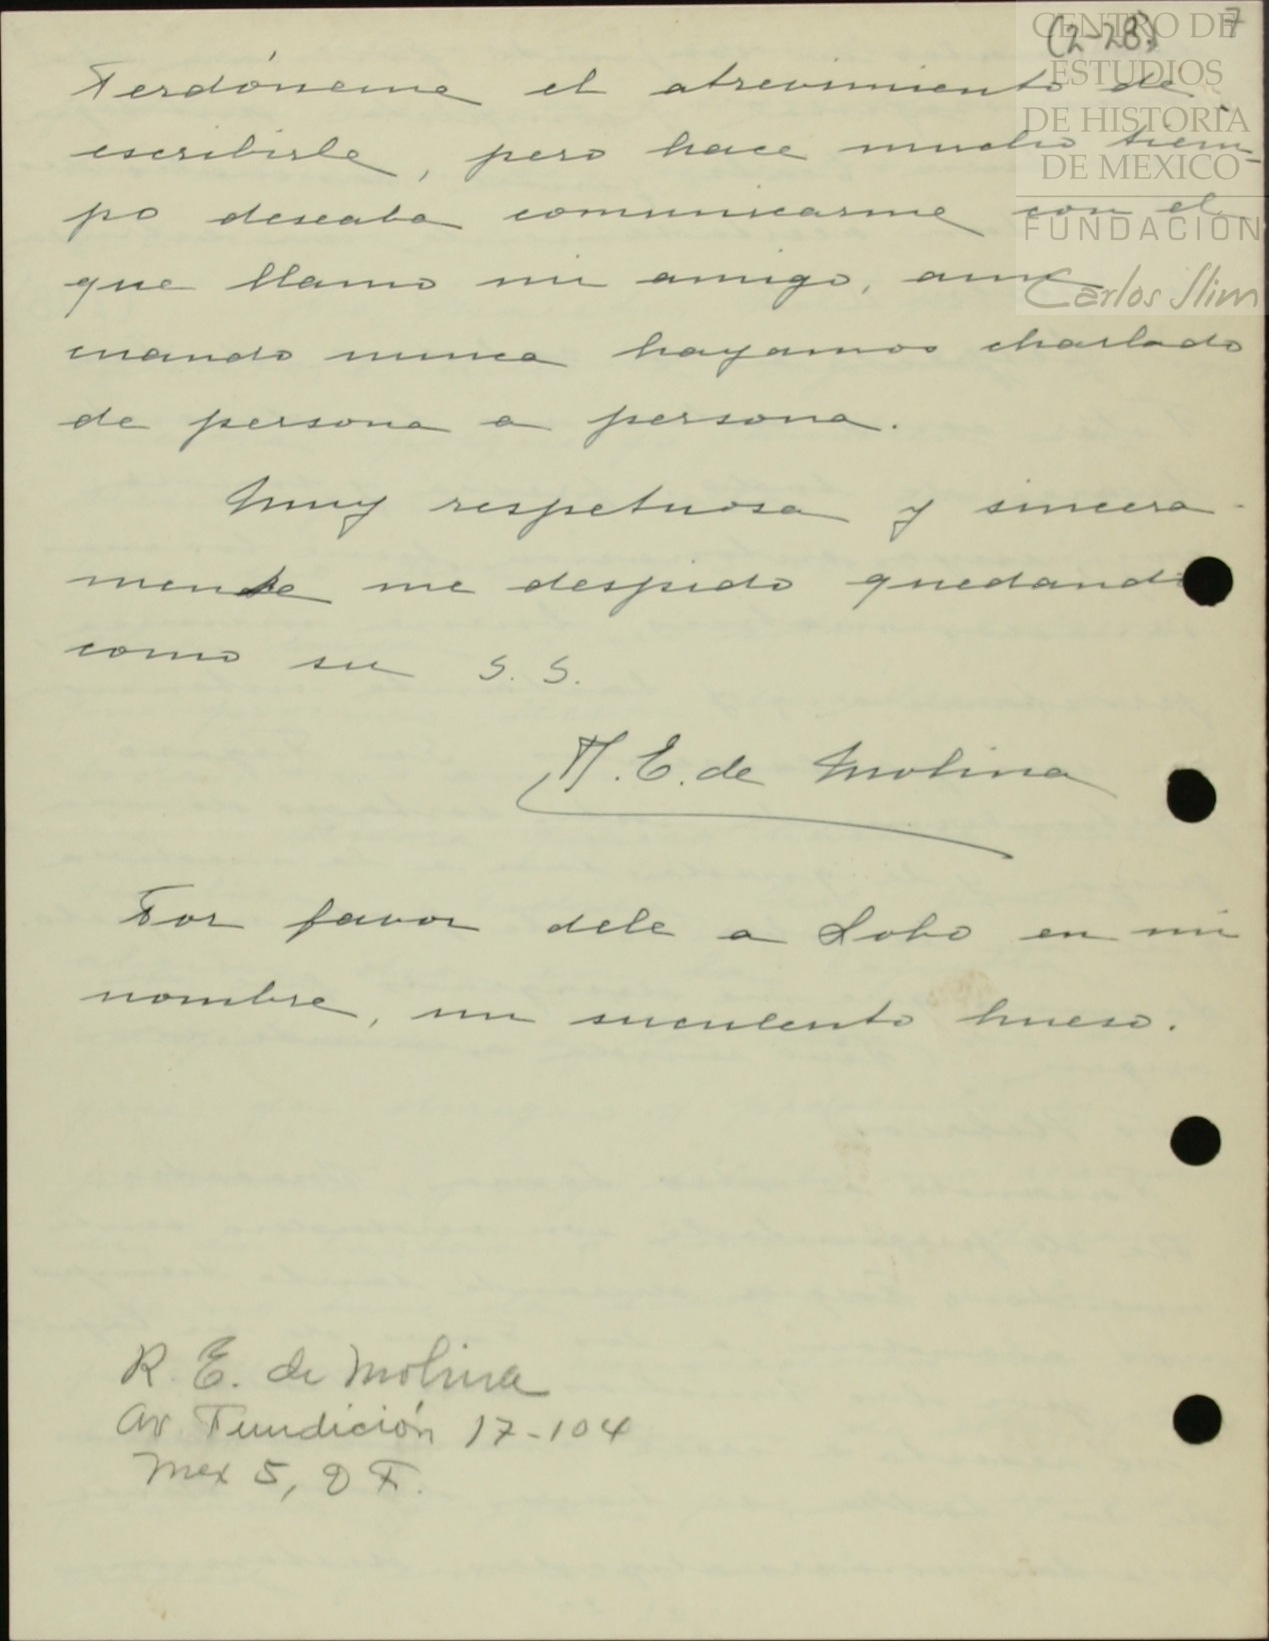 (2-28) 7
CENTRO DE
ESTUDIOS
DE HISTORIA
DE MEXICO
FUNDACION
Carlos Slim
Perdóneme el atrevimiento de
escribirle, pero hace mucho tiem-
po deseaba comunicarme con el
que llamo mi amigo, aun
cuando nunca hayamos charlado
de persona a persona.
Muy respetuosa y sincera-
mente me despido quedando
como su S. S.
R. E. de Molina
Por favor dele a Lobo en mi
nombre, un suculento hueso.
R. E. de Molina
Av Fundición 17-104
Mex 5, D F.